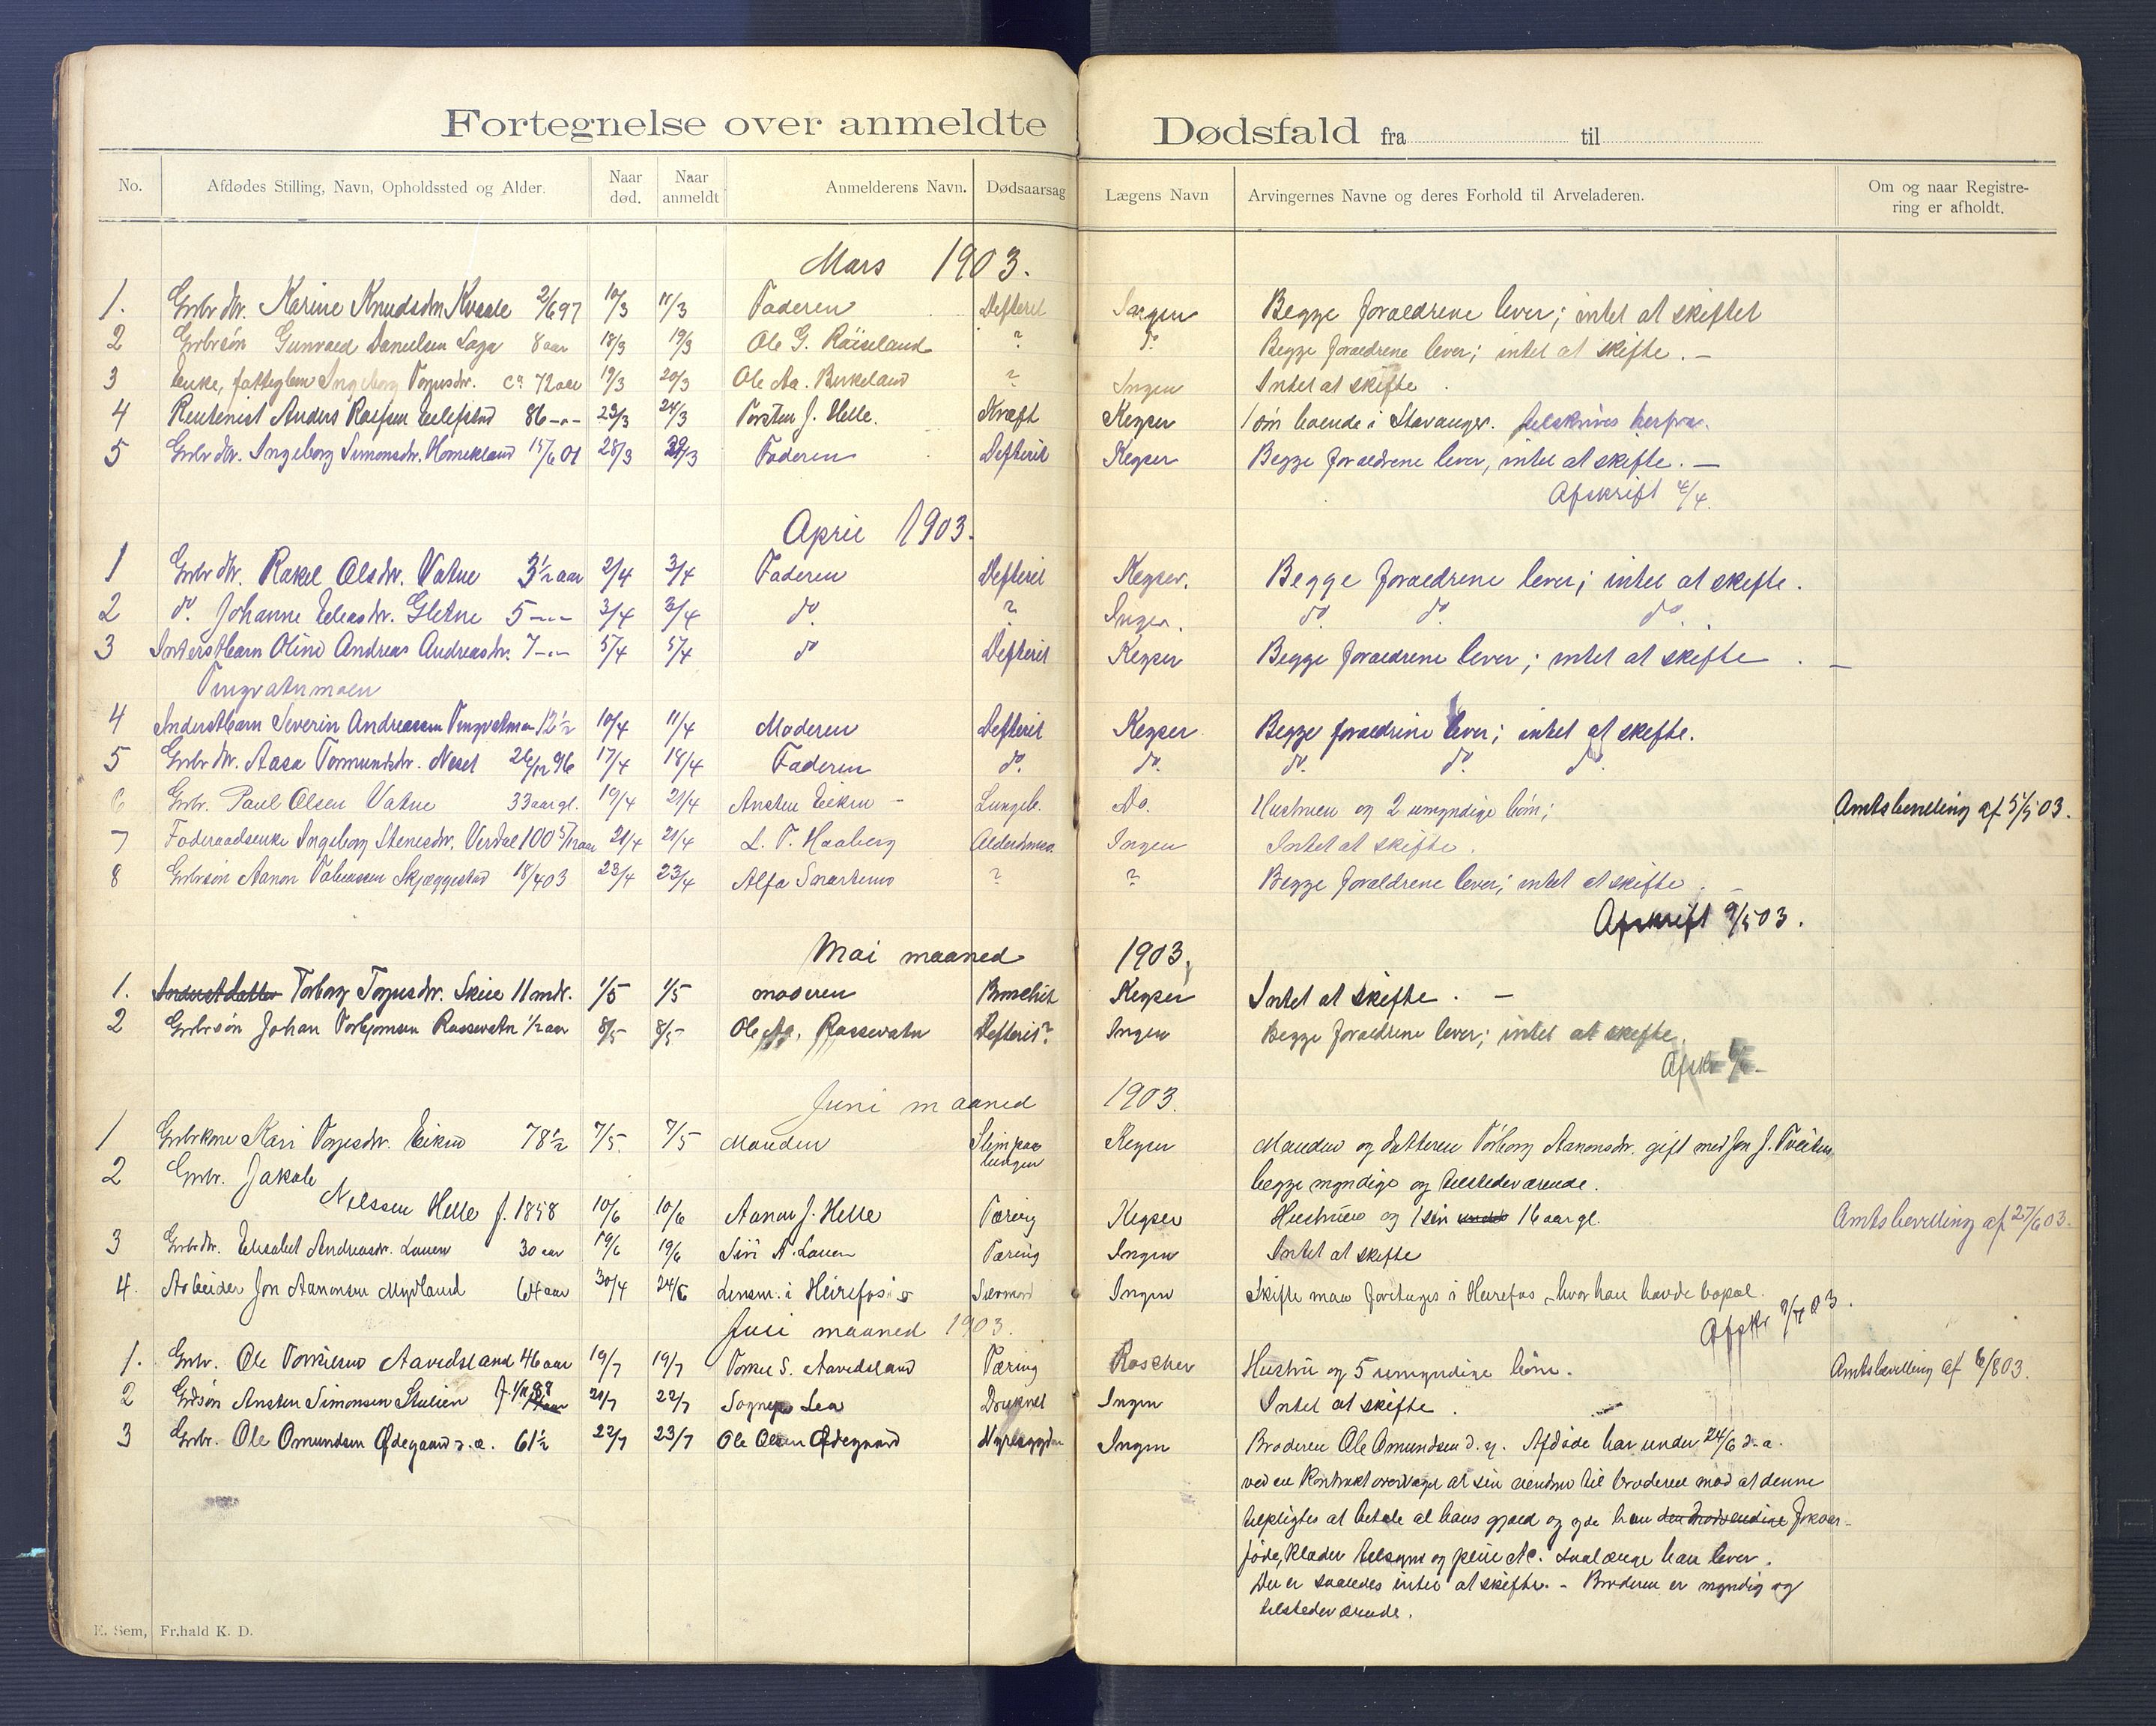 Fortegnelse over anmeldte Dødsfald fra til
No. Afdødes Stilling, Navn, Opholdssted og Alder. Naar død. Naar anmeldt Anmelderens Navn. Dødsaarsag Lægens Navn Arvingernes Navne og deres Forhold til Arveladeren. Om og naar Registrering er afholdt.
Mars 1903.
1. Grbr dtr. Karine Knudsdtr. Kvaale 2/6 97 10/3 11/3 Faderen Defterit Ingen Begge forældrene lever; intet at skiftet
2 Grbrsøn Gunvald Danielsen Laga 8 aar 18/3 19/3 Ole G. Röiseland ? do Begge forældrene lever; intet at skifte. —
3 Enke, fattiglem Ingeborg Torjusdr. ca 72 aar 19/3 20/3 Ole Aa. Birkeland ? Ingen Intet at skifte.
4 Rentenist Anders Rolfsen Eilefstad 86 -"- 23/3 24/3 Torsten J. Helle. Kræft Keyser 1 søn boende i Stavanger. tilskrives herfra.
5 Grbr dtr. Ingeborg Simonsdr. Homekland 15/6 01 28/3 29/3 Faderen Defterit Keyser Begge forældrene lever, intet at skifte. —
Afskrift 4/4.
April 1903.
1 Grbr dtr. Rakel Olsdtr. Vatne 3 1/2 aar 2/4 3/4 Faderen Defterit Keyser. Begge forældrene lever; intet at skifte.
2 do. Johanne Eliasdr. Gletne 5 -"- 3/4 3/4 do. ? Ingen. do. do. do.
3 Inderstbarn Olind Andreas Andreasdr. 7 -"- 5/4 5/4 do Defterit Keyser Begge forældrene lever; intet at skifte. —
Tingvatnmoen
4 Inderstbarn Severin Andreassen Tingvatnmoen 12 1/2 10/4 11/4 Moderen Defterit Keyser Begge forældrene lever; intet at skifte.
5 Grbr dtr. Aasa Tormundsdr. Neset 26/12 96 17/4 18/4 Faderen do. do. do. do. do.
6 Grbr. Paul Olsen Vatne 33 aar gl. 19/4 21/4 Ansten Eiken – Lungeb. Do. Hustruen og 2 umyndige børn; Amtsbevilling af 5/5 03.
7 Føderaadsenke Ingeborg Stenesdr. Verdal 100 5/12 aar 21/4 21/4 L. T. Haaberg Alderdoms. Ingen Intet at skifte.
8 Grbrsøn Aanon Tobiassen Skjæggestad 18/4 03 23/4 23/4 Alfa Snartemo ? ? Begge forældrene lever; intet at skifte. –
Afskrift 9/5 03.
Mai maaned 1903.
1. Inderstdatter Torborg Torjusdr. Skeie 11 mdr. 1/5 1/5 moderen Bronchit Keyser Intet at skifte. —
2 Grbrsøn Johan Torbjornsen Rossevatn 1/2 aar 8/5 8/5 Ole Aa. Rossevatn Defterit? Ingen Begge forældrene lever; intet at skifte.
Afskr
Juni maaned 1903.
1 Grbrkone Kari Torjesdr. Eiken 78 1/2 7/5. 7/5 Manden Slim paa lungen Keyser Manden og datteren Torborg Aanonsdr. gift med Jon J. Tveiten,
begge myndige og tilstedeværende.
2 Grbr. Jakob
Nilssen Helle f. 1858 10/6 10/6 Aanon J. Helle Tæring Keyser Hustruen og 1 søn under 16 aar gl. Amtsbevilling af 27/6 03.
3 Grbr dtr. Elisabet Andreasdr. Lauen 30 aar 19/6 19/6 Siri A. Lauen Tæring Ingen Intet at skifte
4. Arbeider Jon Aanonsen Mydland 64 aar 30/4 24/6 Lensm. i Heirefos Ingen Skifte maa foretages i Heirefos, hvor han havde bopæl.
Afskr 9/7 03.
Juli maaned 1903.
1. Grbr. Ole Torkilsen Aavedsland 46 aar 19/7 19/7 Torkel S. Aavedsland Tæring Roscher Hustru og 5 umyndige børn. Amtsbevilling af 6/8 03.
2 Grbsøn Ansten Simonsen Stulien f. 1/11 98 21/7 22/7 Sognep. Lea Druknet Ingen Intet at skifte.
3 Grbr. Ole Omundsen Ødegaard d. æ. 61 1/2 22/7 23/7 Ole Olsen Ødegaard Ingen Broderen Ole Omundsen d. y. Afdøde har under 24/6 d. a.
ved en Kontrakt overdraget al sin eiendom til broderen mod at denne
tilpligtes at betale al hans gjæld og yde han den nødvendige Forvar-
føde, Klæder tilsyn og pleie etc. saalænge han lever.
Der er saaledes intet at skifte. – Broderen er myndig og
tilstedeværende.
E. Sem, Fr.hald K. D.